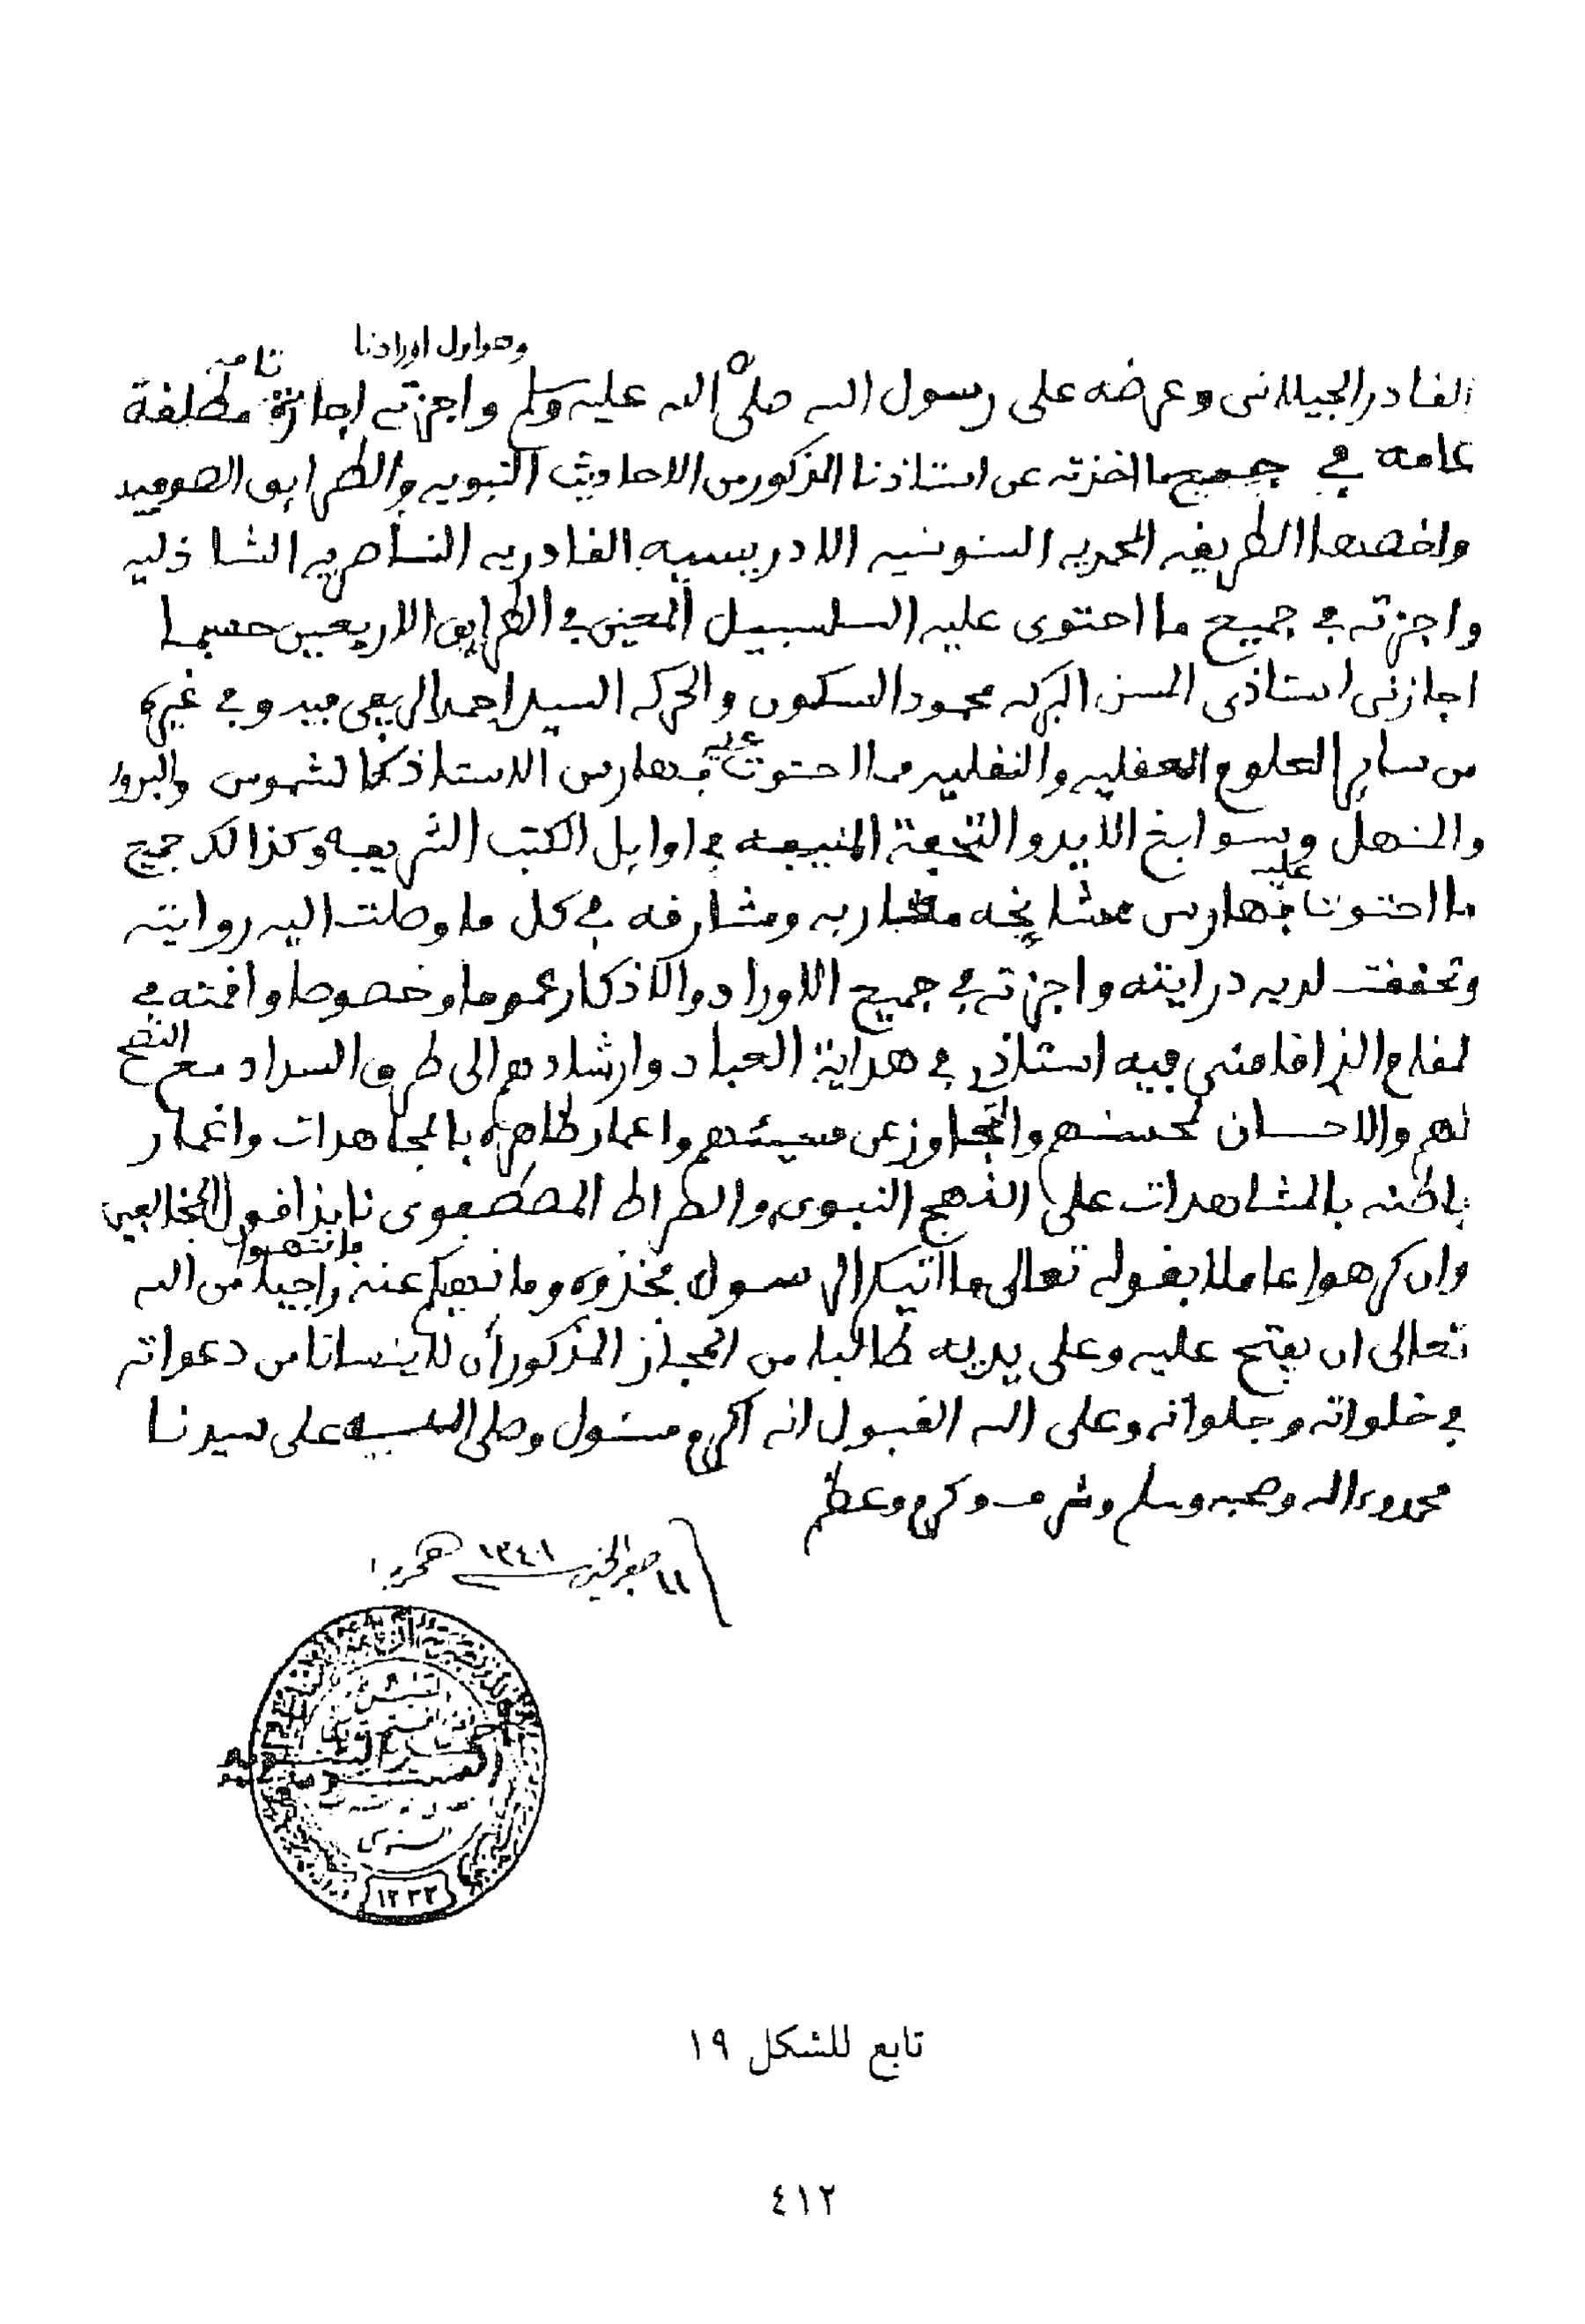 وهو اول اورادنا
القادر الجيلانى وعرضه على رسول الله صلى الله عليه وسلم واجزته اجازة تامه مطلقة
عامه في جميع ما اخذته عن استاذنا المذكور من الاحاديث النبويه والطرايق الصوفيه
واخصها الطريقه المحمديه السنوسيه الادريسيه القادريه الناصريه الشاذليه
واجزته في جميع ما احتوى عليه السلسبيل المعين في الطرايق الاربعين حسبما
اجازنى استاذى الحسن البركه محمود السكون والحركه السيد احمد الريفى فيه وفي غيره
من ساير العلوم العقليه والنقليه مما احتوت عليه فهارس الاستاذ كالشموس والبدور
والمنهل وسوابغ الايد والتحفة المنيعه في اوايل الكتب الشريفه وكذالك جميع
ما احتوت عليه فهارس مشايخه مغاربه ومشارقه في كل ما وصلت اليه روايته
وتحققت لديه درايته واجزته في جميع الاوراد والاذكار عموما وخصوصا واقمته في
المقام الذى اقامنى فيه استاذى في هداية العباد وارشادهم الى طرق السداد مع النصح
لهم والاحسان لمحسنهم والتجاوز عن مسيئهم واعمار ظاهره بالمجاهدات واغمار
باطنه بالمشاهدات على النهج النبوى والصراط المصطفوى نابذا قول المخالفين
وان كرهوا عاملا بقوله تعالى ما اتيكم الرسول فخذوه وما نهيكم عنه فانتهوا راجيا من الله
تعالى ان يفتح عليه وعلى يديه طالبا من المجاز المذكور أن لا ينسانا من دعواته
في خلواته وجلواته وعلى الله القبول انه اكرم مسئول وصلى الله على سيدنا
محمد وءاله وصحبه وسلم وشرف وكرم وعظم
١١ صفر الخير ١٣٤١ هجريه
١٣٣٢
تابع للشكل ١٩
٤١٢